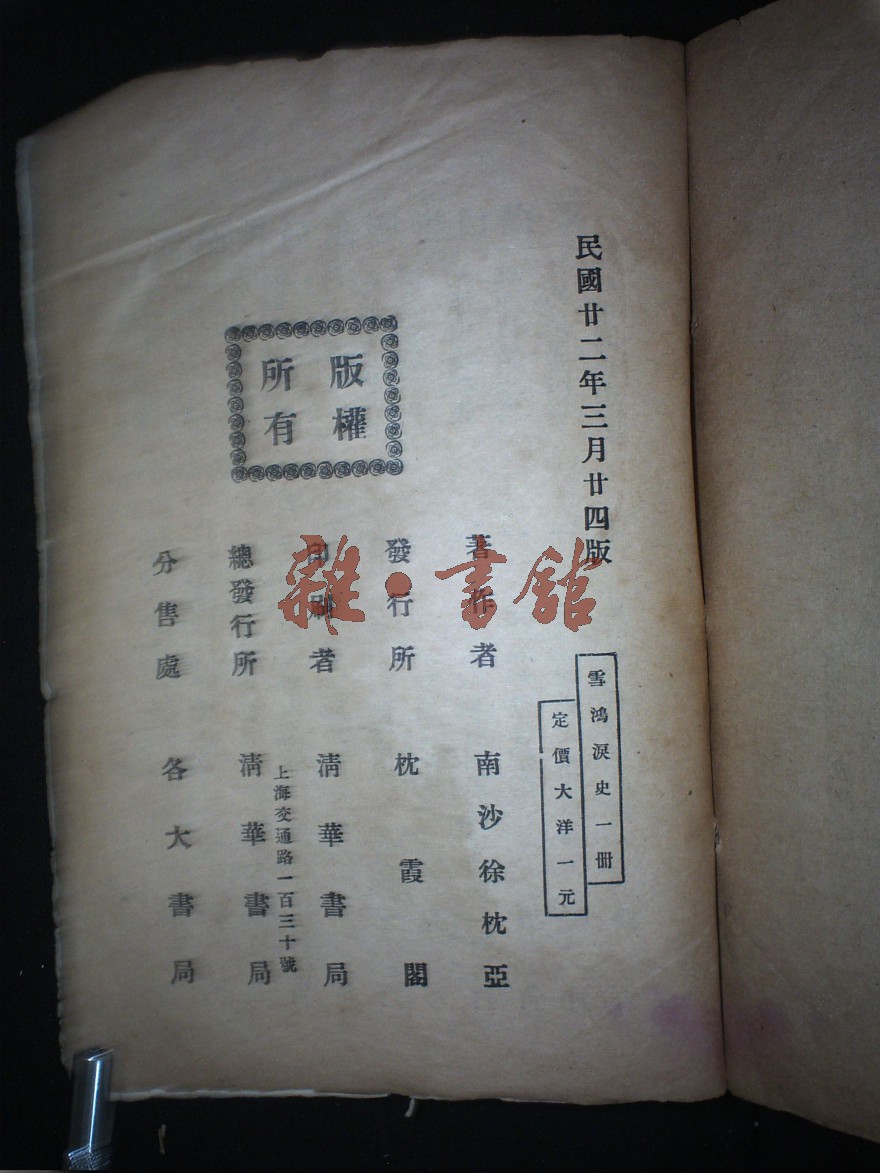 民國廿二年三月廿四版
雪鴻淚史一册
定價大洋一元
著作者 南沙徐枕亞
發行所 枕霞閣
印刷者 清華書局
上海交通路一百三十號
總發行所 清華書局
分售處 各大書局
版權
所有
雜·書館